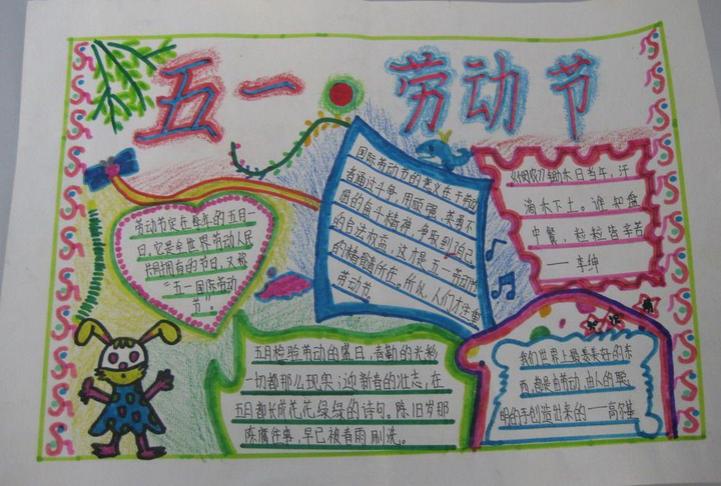 五一·劳动节
劳动节定在每年的五月一
日。它是全世界劳动人民
共同拥有的节日。又称
“五一国际劳动
节”。
国际劳动节的意义在于劳动
者通过斗争，用顽强、英勇不
屈的奋斗精神，争取到了自己
的合法权益，这才是五一劳动节
的精髓所在。所以，人们才注重
劳动节。
《悯农》锄禾日当午，汗
滴禾下土。谁知盘
中餐，粒粒皆辛苦
——李绅
五月检验劳动的曙日，春勤的光彩
一切都那么现实；迎新春的壮志，在
五月都长成花花绿绿的诗句。陈旧岁那
陈腐往事，早已被春雨刷洗。
我们世界上最美好的东
西，都是由劳动、由人的聪
明的手创造出来的——高尔基